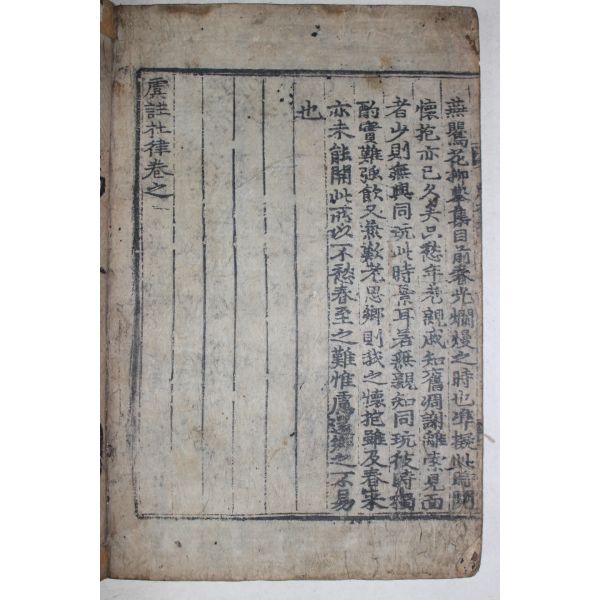 燕鸎花柳摹集目前春光爛熳之時也準擬此時開
懷抱亦已久矣只愁年老親戚知舊凋謝離索見面
者少則無與同玩此時景耳若無親知同玩彼時獨
酌實難強飲又兼歎老思鄉則我之懷抱雖及春來
亦未能開此所以不愁春至之難惟慮還鄉之不易
也
虞註杜律卷之